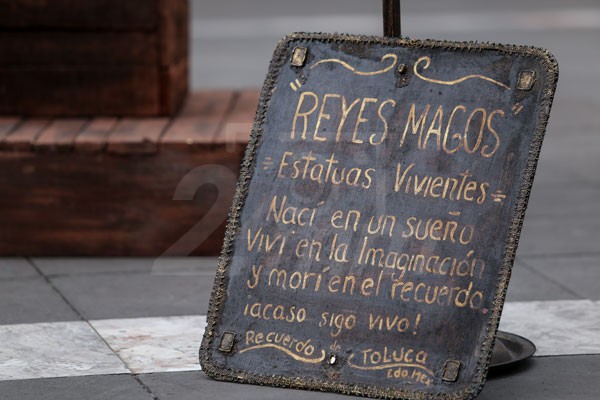 "REYES MAGOS"
= Estatuas Vivientes =
Nací en un sueño
Viví en la Imaginación
y morí en el recuerdo
¡acaso sigo vivo!
Recuerdo de TOLUCA
Edo. Mex